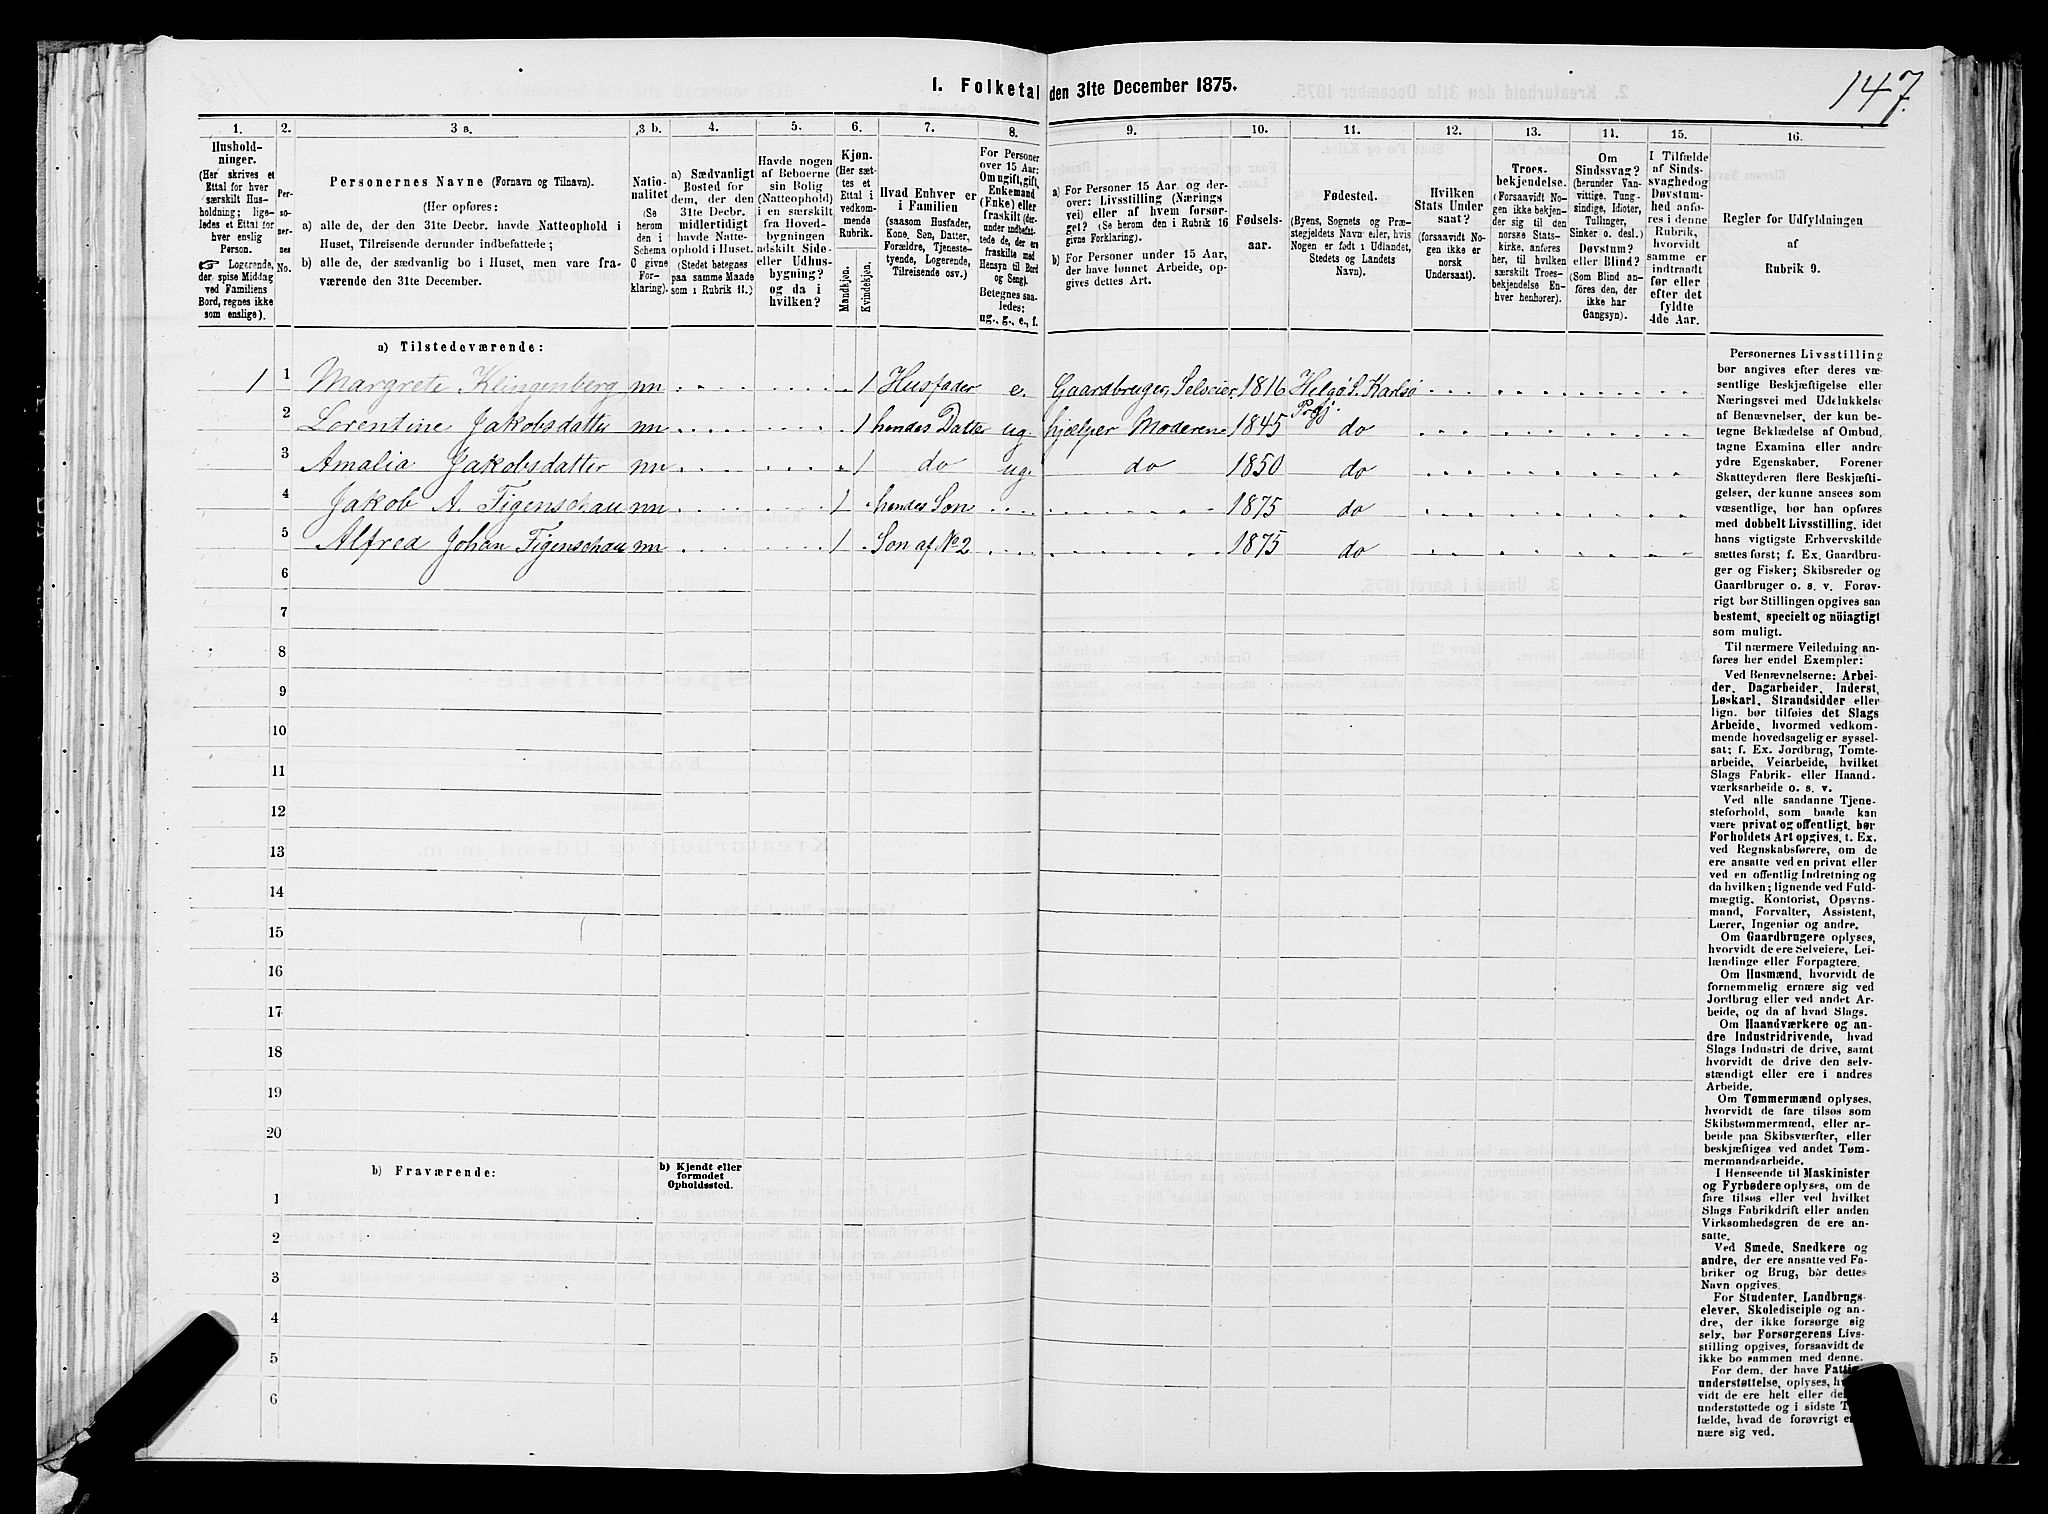 147
1. Folketal den 31te December 1875.
1. 2. 3 a. 3 b. 4. 5. 6. 7. 8. 9. 10. 11. 12. 13. 14. 15. 16.
Husholdninger.
(Her skrives et
Ettal for hver
særskilt Husholdning; ligeledes et Ettal for
hver enslig
Person.
☞ Logerende,
der spise Middag
ved Familiens
Bord, regnes ikke
som enslige).
Personernes No.
Personernes Navne (Fornavn og Tilnavn).
(Her opføres:
a) alle de, der den 31te Decbr. havde Natteophold i
Huset, Tilreisende derunder indbefattede;
b) alle de, der sædvanlig bo i Huset, men vare fraværende den 31te December.
Nationalitet
(Se
herom
den i
Schema
C givne
Forklaring).
a) Sædvanligt
Bosted for
dem, der den
31te Decbr.
midlertidigt
havde Natteophold i Huset.
(Stedet betegnes
paa samme Maade
som i Rubrik 11.)
Havde nogen
af Beboerne
sin Bolig
(Natteophold)
i en særskilt
fra Hovedbygningen
adskilt Side-
eller Udhusbygning?
og da i
hvilken?
Kjøn.
(Her sættes et
Ettal i
vedkommende
Rubrik.
Mandkjøn.
Kvindekjøn.
Hvad Enhver er
i Familien
(saasom Husfader,
Kone, Søn, Datter,
Forældre, Tjenestetyende, Logerende,
Tilreisende osv.)
For Personer
over 15 Aar:
Om ugift, gift,
Enkemand
(Enke) eller
fraskilt (derunder indbefattede de, der ere
fraskilte med
Hensyn til Bord
og Seng).
Betegnes saaledes:
ug., g., e., f.
a) For Personer 15 Aar og derover: Livsstilling (Næringsvei) eller af hvem forsørget? (Se herom den i Rubrik 16
givne Forklaring).
b) For Personer under 15 Aar,
der have lønnet Arbeide, opgives dettes Art.
Fødselsaar.
Fødested.
(Byens, Sognets og Præstegjeldets Navn eller, hvis
Nogen er født i Udlandet,
Stedets og Landets
Navn).
Hvilken
Stats Undersaat?
(forsaavidt Nogen ikke er
norsk
Undersaat).
Troesbekjendelse.
(Forsaavidt Nogen ikke bekjender sig til den
norske Statskirke, anføres
her, til hvilken
særskilt Troesbekjendelse Enhver henhører).
Om
Sindssvag?
(herunder Vanvittige, Tungsindige, Idioter,
Tullinger,
Sinker o. desl.)
Døvstum?
eller Blind?
(Som Blind anføres den, der
ikke har
Gangsyn).
I Tilfælde
af Sindssvaghed og
Døvstumhed anføres i denne
Rubrik,
hvorvidt
samme er
indtraadt
før eller
efter det
fyldte
4de Aar.
Regler for Udfyldningen
af
Rubrik 9.
a) Tilstedeværende:
1 1 Margrete Klingenberg nn 1 Husfader e. Gaardbruger, Selveier 1816 Helgø S. Karlsø Prgj.
2 Lorentine Jakobsdatter nn 1 hendes Datter ug hjælper Moderene 1845 do
3 Amalia Jakobsdatter nn 1 do ug. do 1850 do
4 Jakob A. Figenschau nn 1 hendes Søn 1875 do
5 Alfred Johan Figenschau nn 1 Søn af No 2 1875 do
6
7
8
9
10
11
12
13
14
15
16
17
18
19
20
b) Fraværende:
b) Kjendt eller
formodet
Opholdssted.
1
2
3
4
5
6
Personernes Livsstilling
bør angives efter deres væsentlige Beskjæftigelse eller
Næringsvei med Udelukkelse
af Benævnelser, der kun betegne Beklædelse af Ombud,
tagne Examina eller andre
ydre Egenskaber. Forener
Skatteyderen flere Beskjæftigelser, der kunne ansees som
væsentlige, bør han opføres
med dobbelt Livsstilling, idet
hans vigtigste Erhvervskilde
sættes først; f. Ex. Gaardbruger og Fisker; Skibsreder og
Gaardbruger o. s. v. Forøvrigt bør Stillingen opgives saa
bestemt, specielt og nöiagtigt
som muligt.
Til nærmere Veiledning anføres her endel Exempler:
Ved Benævnelserne: Arbeider, Dagarbeider, Inderst,
Løskarl, Strandsidder eller
lign. bør tilføies det Slags
Arbeide, hvormed vedkommende hovedsagelig er sysselsat; f. Ex. Jordbrug, Tomtearbeide, Veiarbeide, hvilket
Slags Fabrik- eller Haandværksarbeide o. s. v.
Ved alle saadanne Tjenesteforhold, som baade kan
være privat og offentligt, bør
Forholdets Art opgives, t. Ex.
ved Regnskabsførere, om de
ere ansatte ved en privat eller
ved en offentlig Indretning og
da hvilken; lignende ved Fuldmægtig, Kontorist, Opsynsmand, Forvalter, Assistent,
Lærer, Ingeniør og andre.
Om Gaardbrugere oplyses,
hvorvidt de ere Selveiere, Leilændinge eller Forpagtere.
Om Husmænd, hvorvidt de
fornemmelig ernære sig ved
Jordbrug eller ved andet Arbeide, og da af hvad Slags.
Om Haandværkere og andre Industridrivende, hvad
Slags Industri de drive, samt
hvorvidt de drive den selvstændigt eller ere i andres
Arbeide.
Om Tømmermænd oplyses,
hvorvidt de fare tilsøs som
Skibstømmermænd, eller arbeide paa Skibsværfter, eller
beskjæftiges ved andet Tømmermandsarbeide.
I Henseende til Maskinister
og Fyrbødere oplyses, om de
fare tilsøs eller ved hvilket
Slags Fabrikdrift eller anden
Virksomhedsgren de ere ansatte.
Ved Smede, Snedkere og
andre, der ere ansatte ved Fabriker og Brug, bør dettes
Navn opgives.
For Studenter, Landbrugselever, Skoledisciple og andre, der ikke forsørge sig
selv, bør Forsørgerens Livsstilling opgives, forsaavidt de
ikke bo sammen med denne.
For dem, der have
understøttelse, oplyses,
vidt de ere helt eller
understøttede og i sidste
fælde, hvad de forøvrigt
nære sig ved.